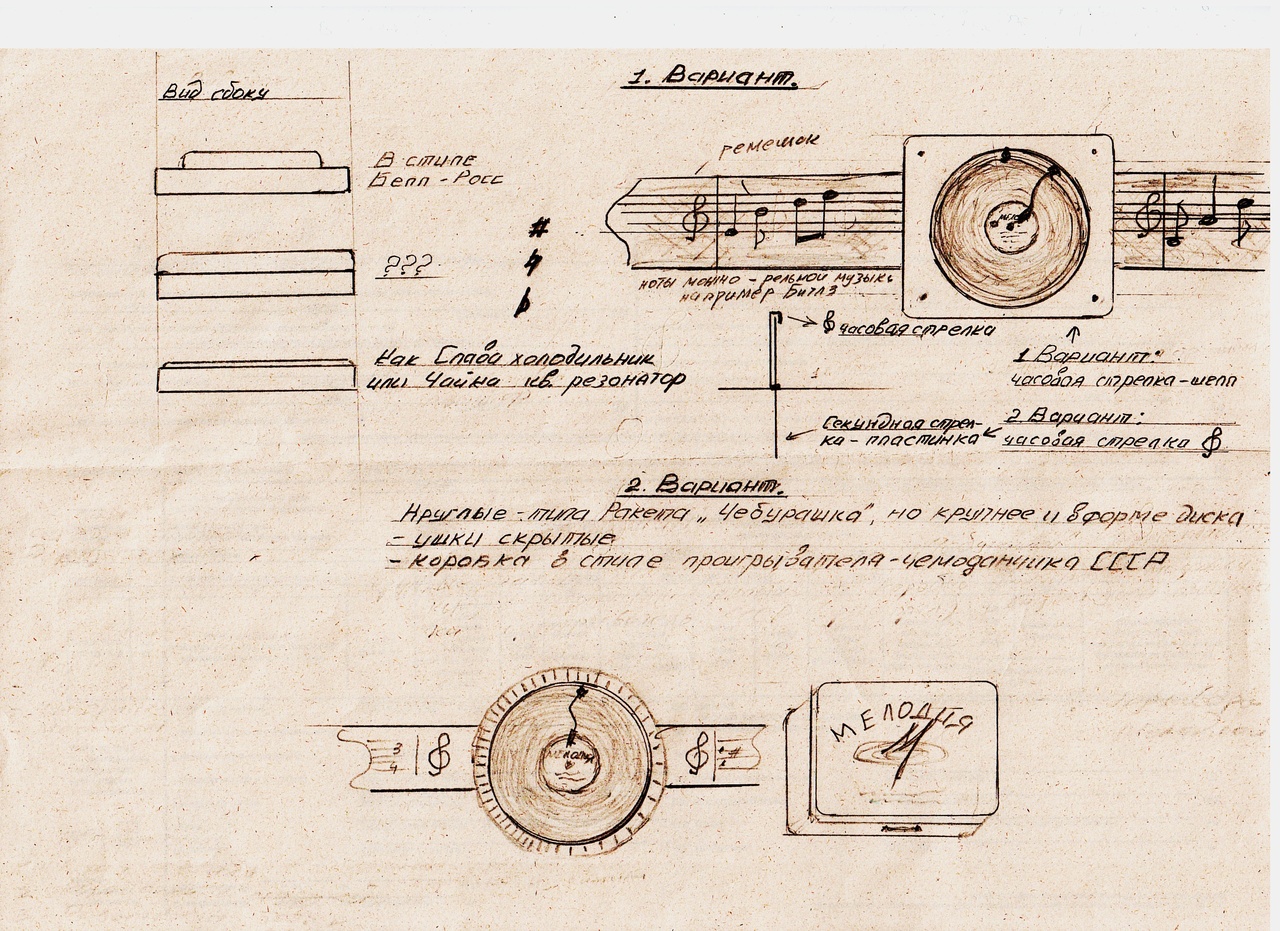 Вид сбоку
В стиле
Белл-Росс
???
Как Слава холодильник
или Чайка кв. резонатор
1. Вариант.
ремешок
МЕЛО
ноты можно - рельной музыки
например Битлз
часовая стрелка
1 Вариант:
часовая стрелка - шелл
Секундная стрел-
ка - пластинка
2 Вариант:
часовая стрелка
2. Вариант.
Круглые - типа Ракета „Чебурашка", но крупнее и в форме диска
- ушки скрытые
- коробка в стиле проигрывателя-чемоданчика СССР
3
4
МЕЛОДИЯ
МЕЛОДИЯ